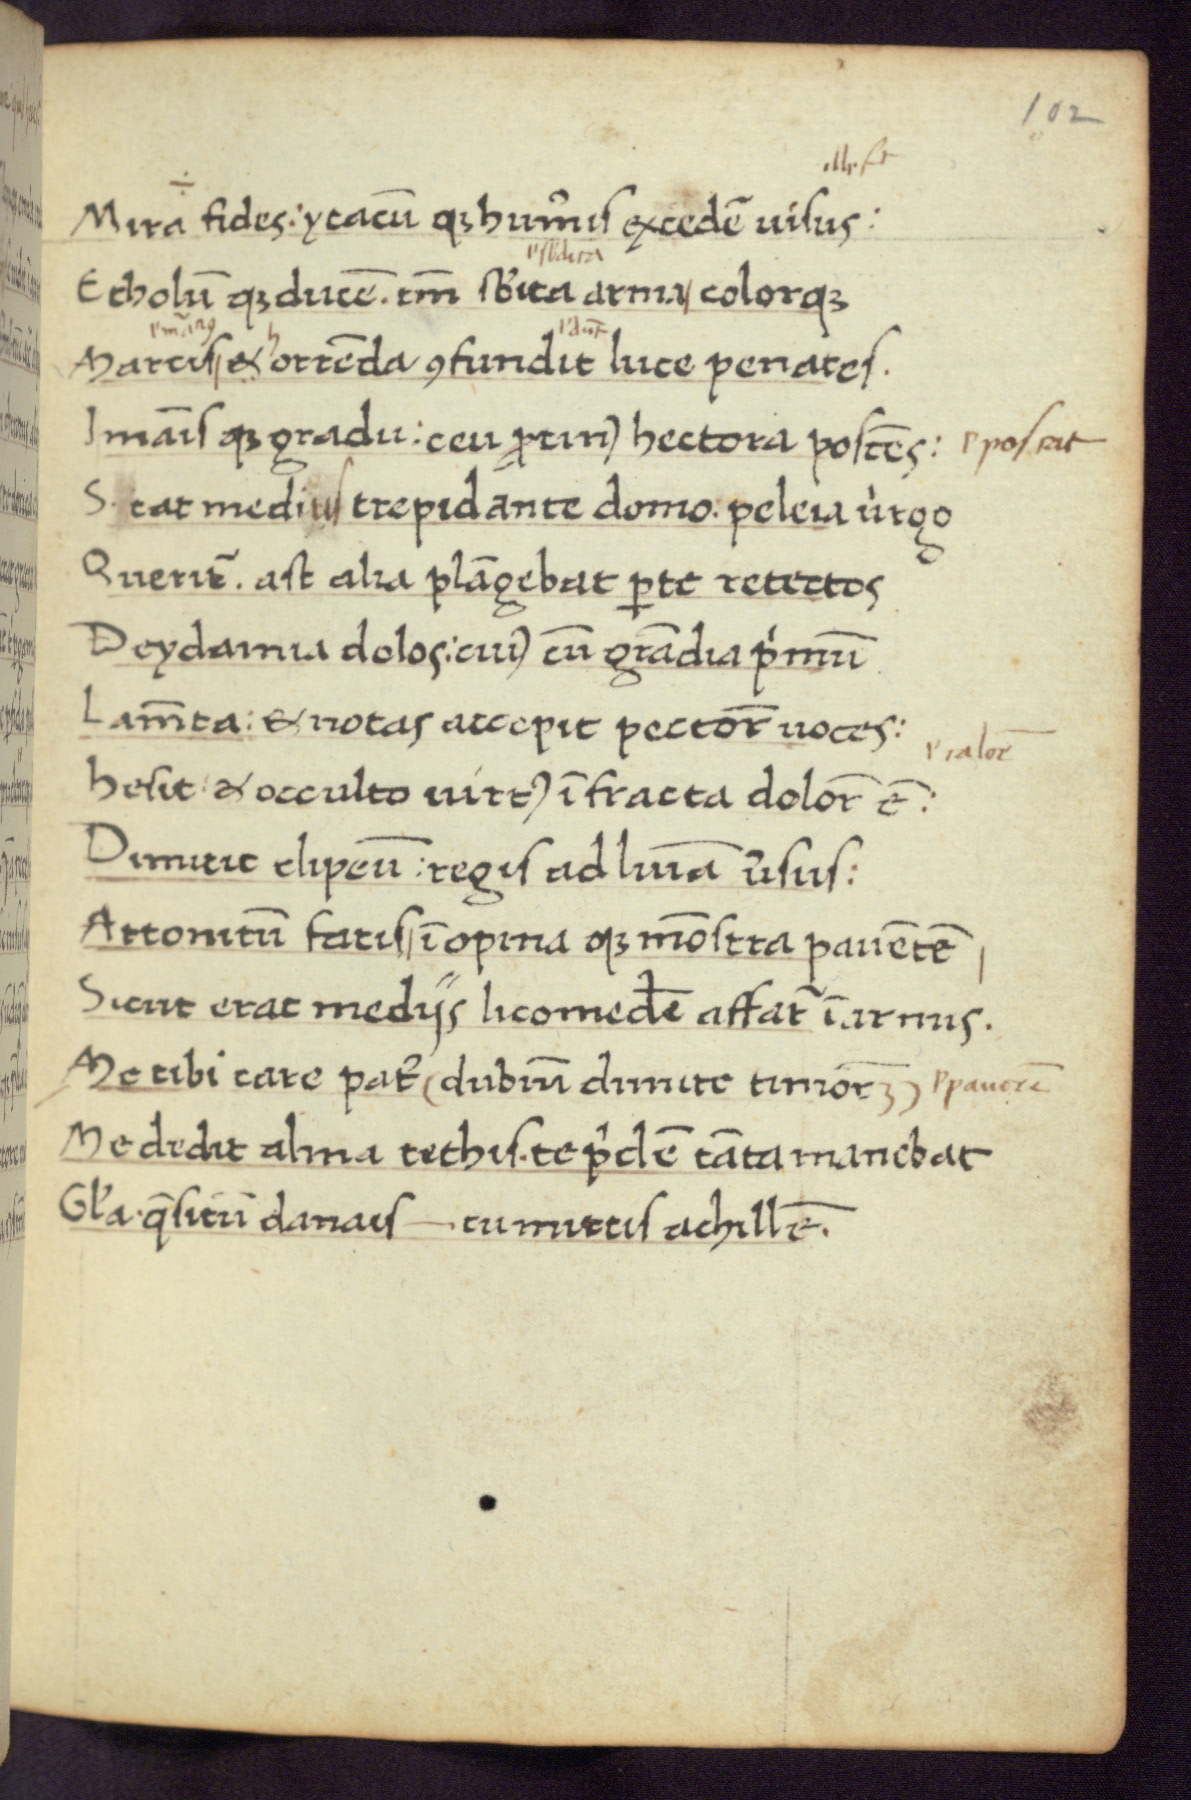 102
Mira fides: ytacū qꝫ hum̃is excedẽ uisus:
Etholũ qꝫ ducẽ. tm̃ sb̃ita arma colorqꝫ
Martis & horrẽda ꝯfundit luce penates.
Imãis qꝫ gradu: ceu ꝓtin⁹ hectora poscẽs: posᷤcat
Stat medius trepidante domo. peleia uirgo
Querit̃. ast alia plãgebat ꝑte retectos
Deydamia dolos: cui⁹ cũ grãdia p̃mũ
Lam̃ta: & notas accepit pector̃ uoces:
hesit & occulto uirt⁹ ĩfracta dolor ẽ: calor
Dimitit clipeũ: regis ad lumã ũsus:
Attonitũ factis ĩopina qꝫ mõstra pauẽtẽ
Sicut erat medijs licomedẽ affat̃ ĩ armis.
Me tibi care pat̃ (dubiũ dimite timorẽ) pauorẽ
Me dedit alma tethis. te p̃dẽ tãta manebat
Gl̃a. q̃situ danais tu mittis achillẽ.